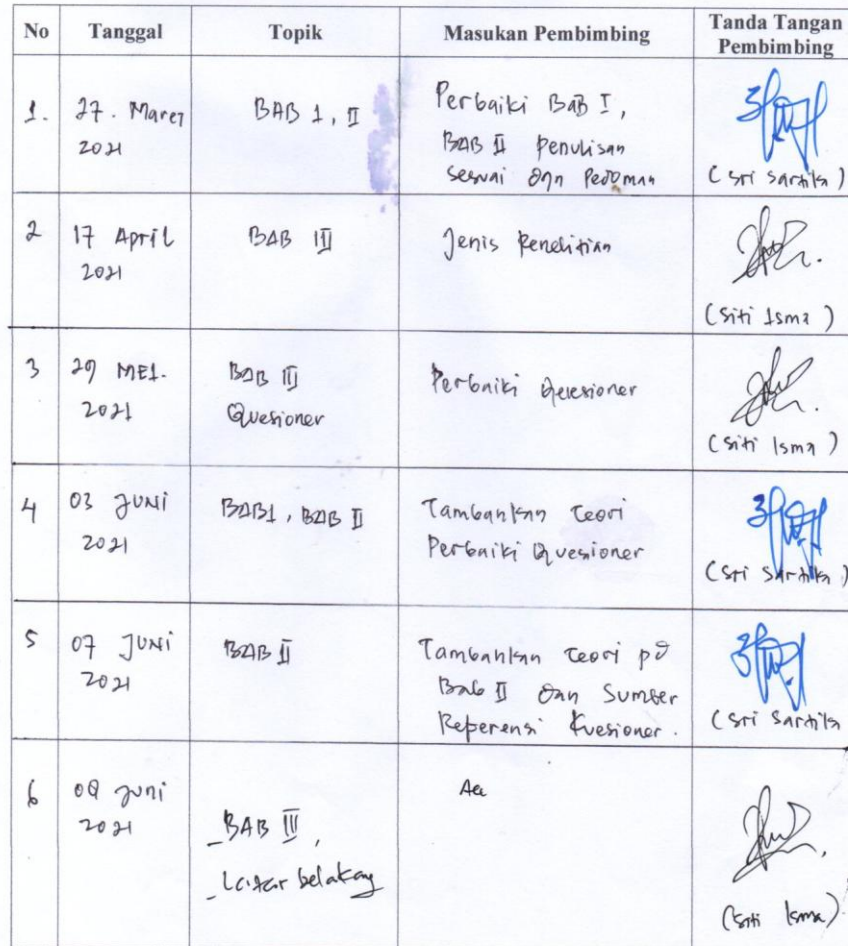 No Tanggal Topik Masukan Pembimbing Tanda Tangan Pembimbing
1. 27. Maret 2021 BAB 1, II Perbaiki BaB I, BAB II penulisan sesuai dgn Pedoman (Sri Sartika)
2 17 April 2021 BAB III Jenis Penelitian (Siti Isma)
3 29 MEI. 2021 BAB III Quesioner Perbaiki Quesioner (Siti Isma)
4 03 JUNI 2021 BAB1, BAB II Tambahkan Teori Perbaiki Quesioner (Sri Sartika)
5 07 JUNI 2021 BAB II Tambahkan Teori pd Bab II dan Sumber Referensi Kuesioner. (Sri Sartika)
6 09 Juni 2021 - BAB III, - Latar belakang Acc (Siti Isma)